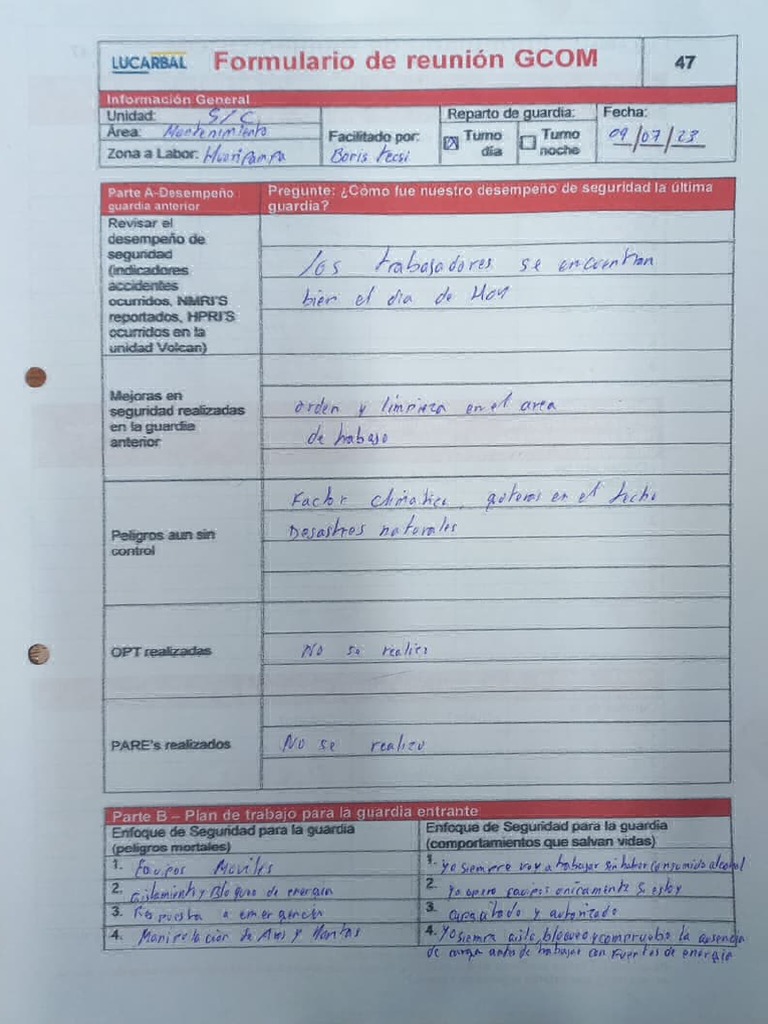 LUCARBAL
Formulario de reunión GCOM
47
Información General
Unidad: S/C
Área: Mantenimiento
Zona a Labor: Huaripampa
Facilitado por:
Boris
Reparto de guardia:
Turno día
Turno noche
Fecha:
09/07/23
Parte A-Desempeño guardia anterior
Pregunte: ¿Cómo fue nuestro desempeño de seguridad la última guardia?
Revisar el
desempeño de
seguridad
(indicadores
accidentes
ocurridos, NMRI'S
reportados, HPRI'S
ocurridos en la
unidad Volcan)
los trabajadores se encuentran
bien el dia de Hoy
Mejoras en
seguridad realizadas
en la guardia
anterior
orden y limpieza en el area
de trabajo
Peligros aun sin
control
Factor climatico, goteras en el techo
Desastres naturales
OPT realizadas
No se realizo
PARE's realizados
No se realizo
Parte B – Plan de trabajo para la guardia entrante
Enfoque de Seguridad para la guardia
(peligros mortales)
1. Equipos Moviles
2. Aislamiento y Bloqueo de energia
3. Respuesta a emergencia
4. Manipulación de
Enfoque de Seguridad para la guardia
(comportamientos que salvan vidas)
1. yo siempre voy a trabajar sin haber consumido alcohol
2. Yo opero equipos unicamente si estoy
3. capacitado y autorizado
4. Yo siempre aislo, bloqueo y compruebo la ausencia
de carga antes de trabajar con fuentes de energia